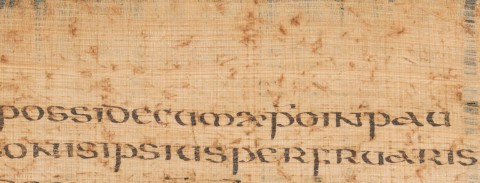 possidecumxpoinpau
onisipsiusperfruaris